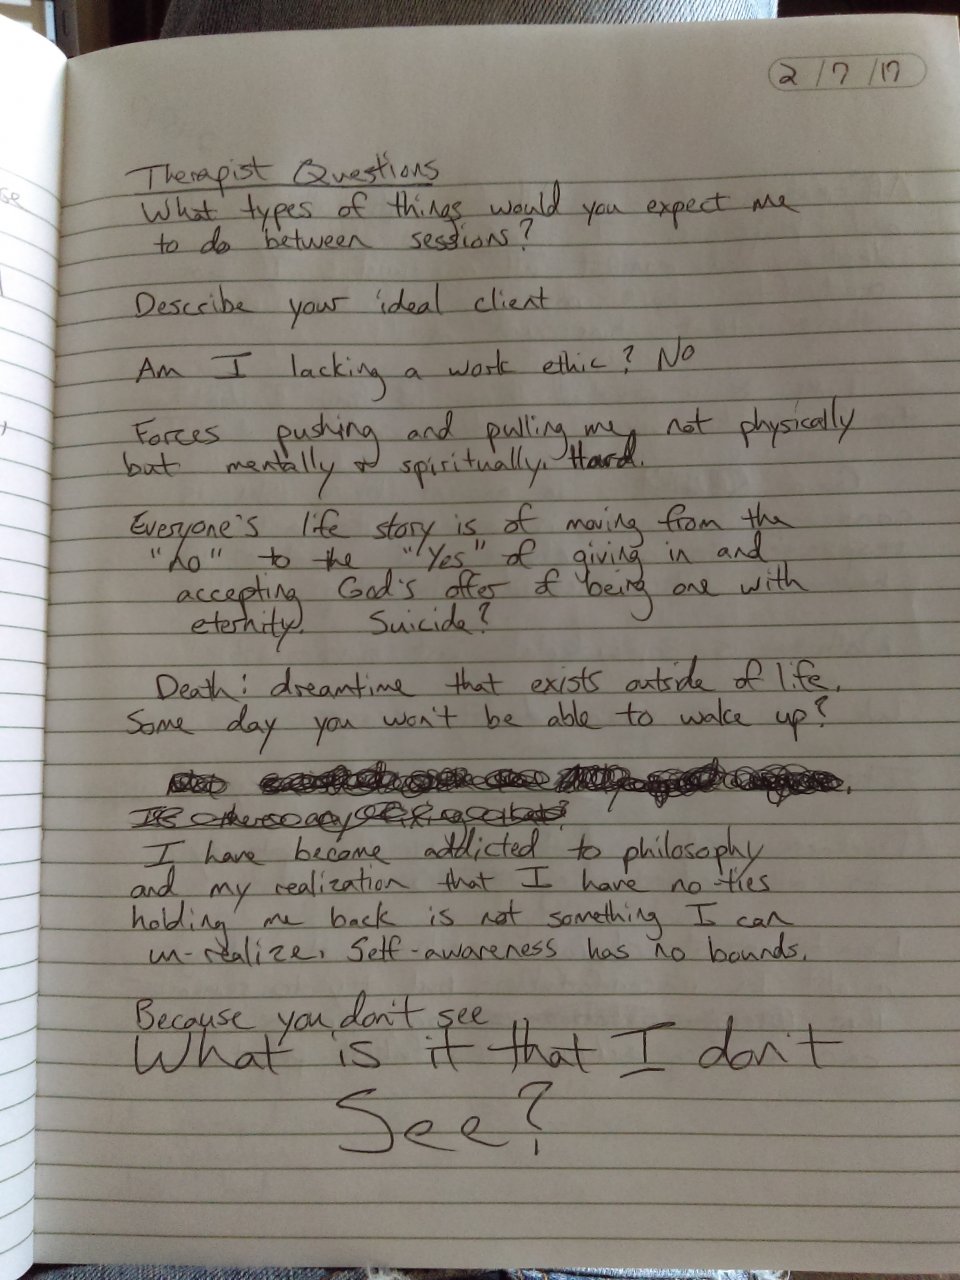 2/7/17
Therapist Questions
What types of things would you expect me
to do between sessions?
Describe your ideal client
Am I lacking a work ethic? No
Forces pushing and pulling me, not physically
but mentally & spiritually. Hard.
Everyone's life story is of moving from the
"no" to the "Yes" of giving in and
accepting God's offer of being one with
eternity. Suicide?
Death: dreamtime that exists outside of life.
Some day you won't be able to wake up?
I have become addicted to philosophy
and my realization that I have no ties
holding me back is not something I can
un-realize. Self-awareness has no bounds.
Because you don't see
What is it that I don't
See?